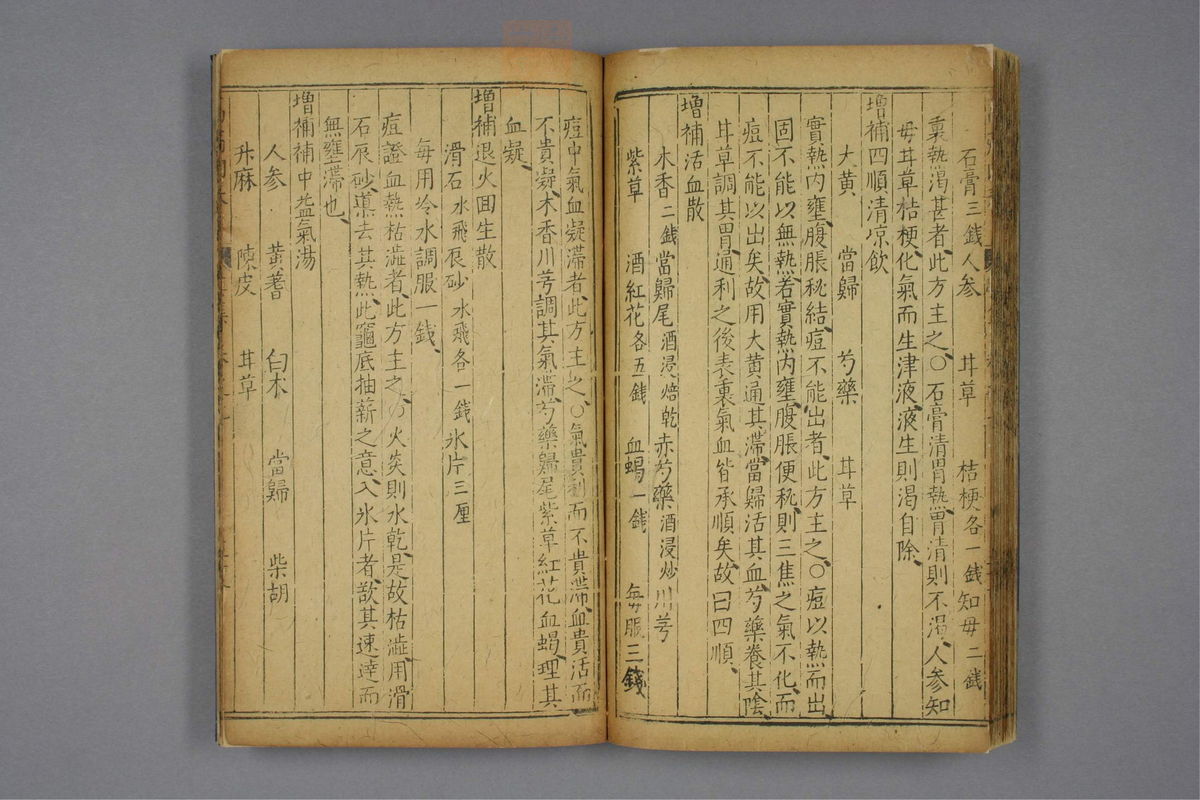 石膏三銭人参 甘草 桔梗各一銭知毋二銭
裏熱渴甚者此方主之○石膏清胃熱胃清則不渴人参知
毋甘草桔梗化氣而生津液液生則渴自除
増補四順清凉飲
大黄 當歸 芍藥 甘草
實熱内壅腹脹秘結痘不能出者此方主之○痘以熱而出
固不能以無熱若實熱内壅腹脹便秘則三焦之氣不化而
痘不能以出矣故用大黄通其滯當歸活其血芍藥養其陰
甘草調其胃通利之後表裏氣血皆承順矣故曰四順
増補活血散
木香二銭當歸尾酒浸焙乾赤芍藥酒浸炒川芎
紫草 酒紅花各五銭 血蝎一銭 毎服三錢
痘中氣血凝滯者此方主之○氣貴利而不貴滯血貴活而
不貴凝木香川芎調其氣滯芍藥歸尾紫草紅花血蝎理其
血凝
増補退火回生散
滑石水飛辰砂水飛各一銭氷片三厘
毎用冷水調服一銭
痘證血熱枯澁者此方主之○火炎則水乾是故枯澁用滑
石辰砂以去其熱此竈底抽薪之意入氷片者欲其速達而
無壅滯也
増補補中益氣湯
人参 黄蓍 白木 當歸 柴胡
升麻 陳皮 甘草